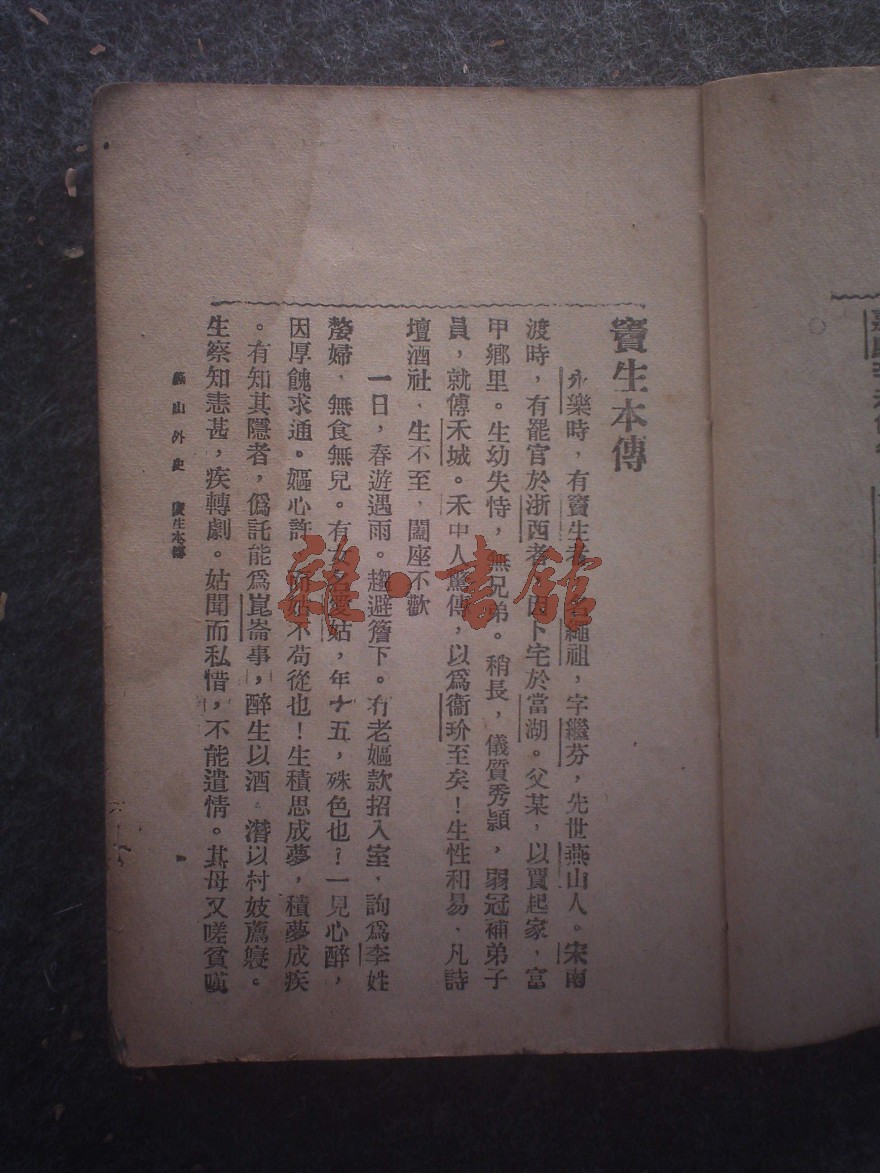 竇生本傳
永樂時，有竇生者，名繩祖，字繼芬，先世燕山人。宋南
渡時，有罷官於浙西者，因卜宅於當湖。父某，以賈起家，富
甲鄉里。生幼失恃，無兄弟。稍長，儀質秀穎，弱冠補弟子
員，就傅禾城。禾中人驚傳，以爲衞玠至矣！生性和易、凡詩
壇酒社，生不至，闔座不歡
一日，春遊遇雨。趨避簷下。有老嫗款招入室，詢爲李姓
嫠婦，無食無兒。有女名愛姑，年十五，殊色也？一見心醉，
因厚餽求通。嫗心許，而姑不苟從也！生積思成夢，積夢成疾
。有知其隱者，僞託能爲崑崙事，醉生以酒，潛以村妓薦寢。
生察知恚甚，疾轉劇。姑聞而私惜，不能遣情。其母又嗟貧嘆
燕山外史 竇生本傳
雜·書館